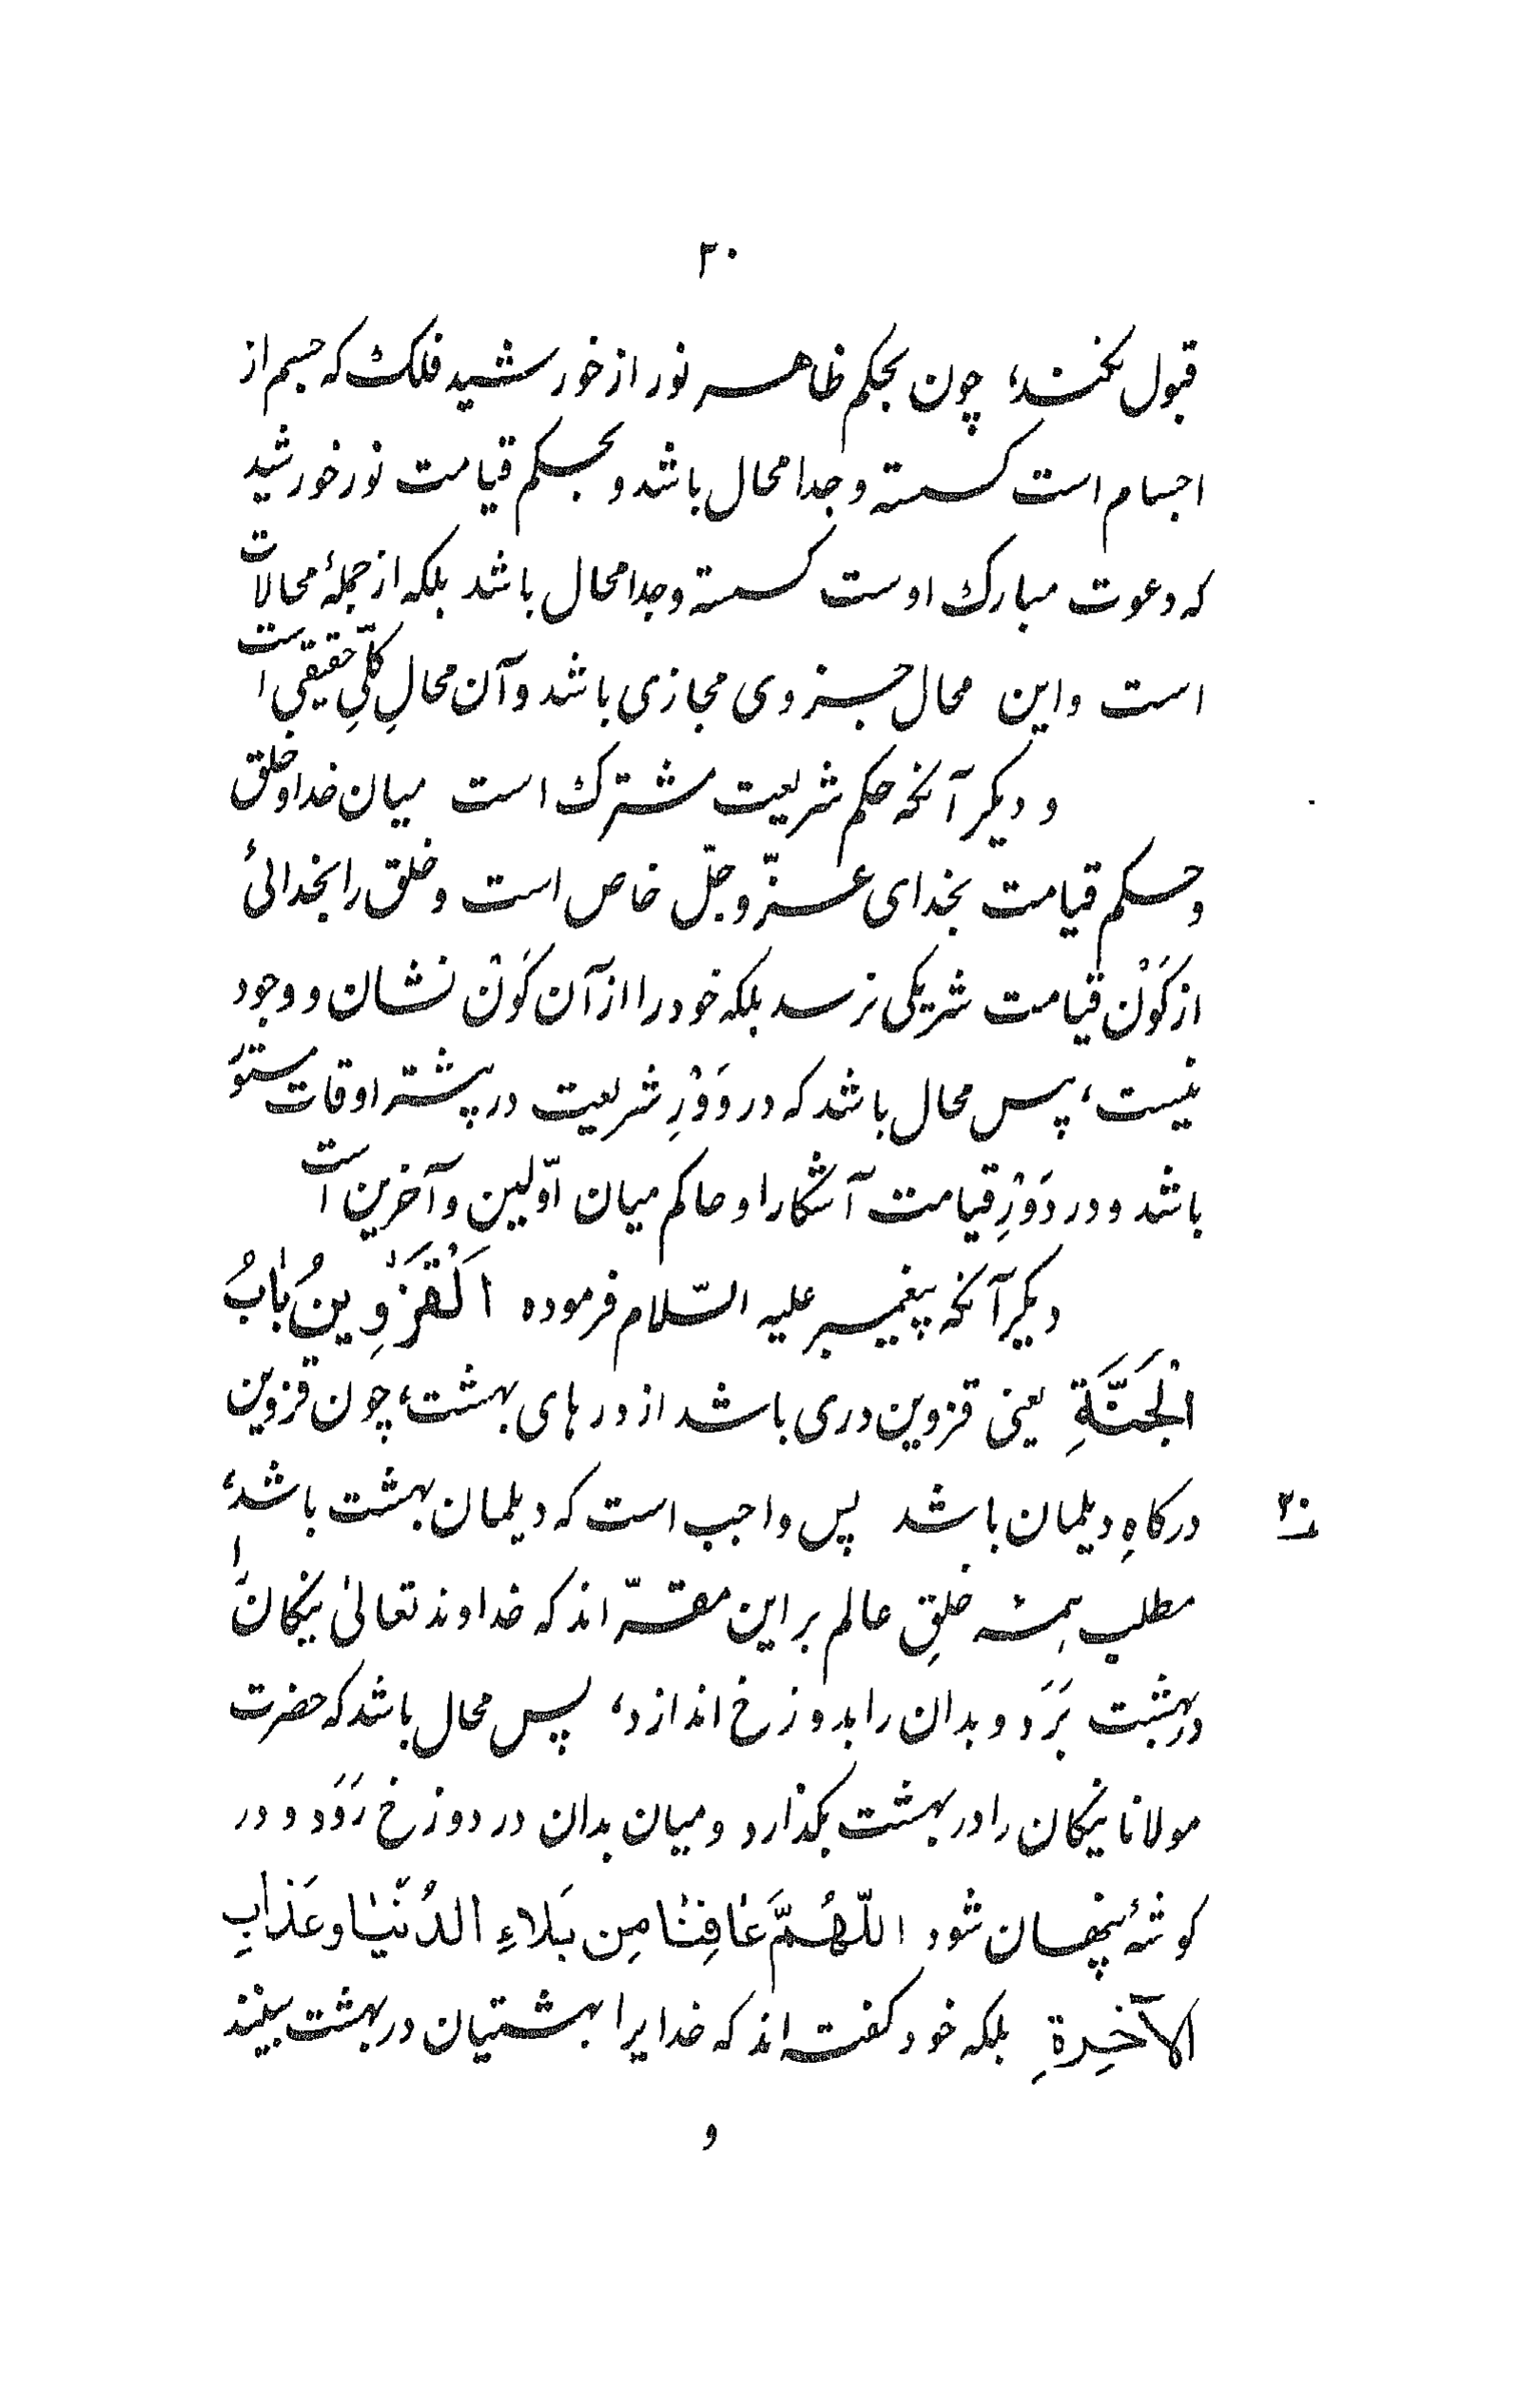 ۲۰
قبول نکنند، چون بحکم ظاهر نور از خورشید فلک که جسم از
اجسام است کسسته و جدا محال باشد و بحکم قیامت نور خورشید
که دعوت مبارک اوست کسسته و جدا محال باشد بلکه از جملهٔ محالات
است و این محال جزوی مجازی باشد و آن محالِ کلّیِ حقیقی است
و دیکر آنکه حکم شریعت مشترک است میان خدا و خلق
و حکم قیامت بخدای عزّ و جلّ خاص است و خلق را بخدائیٔ
از کَوْن قیامت شریکی نرسد بلکه خود را از آن کَوْن نشان و وجود
نیست، پس محال باشد که در دَوْرِ شریعت در پشتر اوقات مستور
باشد و در دَوْرِ قیامت آشکارا و حاکم میان اوّلین و آخرین است
دیکر آنکه پیغمبر علیه السّلام فرموده اَلْقَزْوِینُ بٰابُ
الْجَنَّةِ یعنی قزوین دری باشد از درهای بهشت، چون قزوین
درکاهِ دیلمان باشد پس واجب است که دیلمان بهشت باشد،
۲۰
مطلب همه خلقِ عالم بر این مقرّ اند که خداوند تعالیٰ نیکان را
در بهشت بَرَد و بدان را بدوزخ اندازد، پس محال باشد که حضرت
مولانا نیکان را در بهشت بکذارد و میان بدان در دوزخ رَوَد و در
کوشهٔ پنهان شود اللّهُمَّ عٰافِنٰا مِن بَلاءِ الدُنْیٰا و عَذابِ
الآخِرةِ بلکه خود کفته اند که خدایرا بهشتیان در بهشت بینند
و